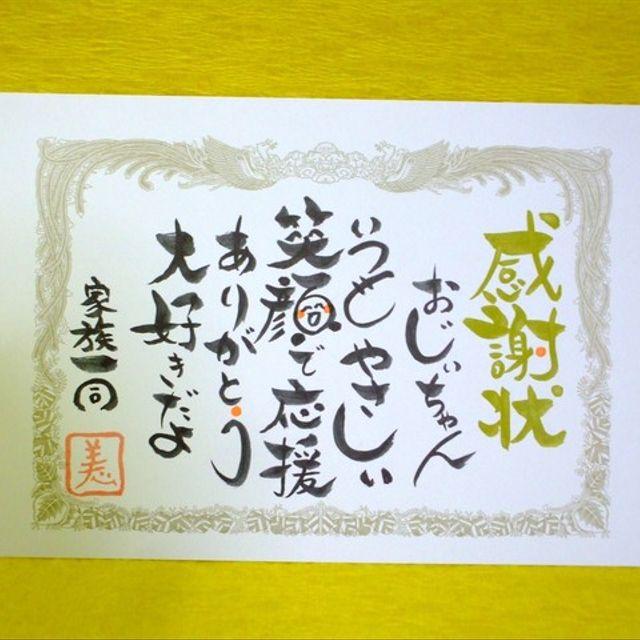 感謝状
おじぃちゃん
いつもやさしい
笑顔で応援
ありがとう
大好きだよ
家族一同